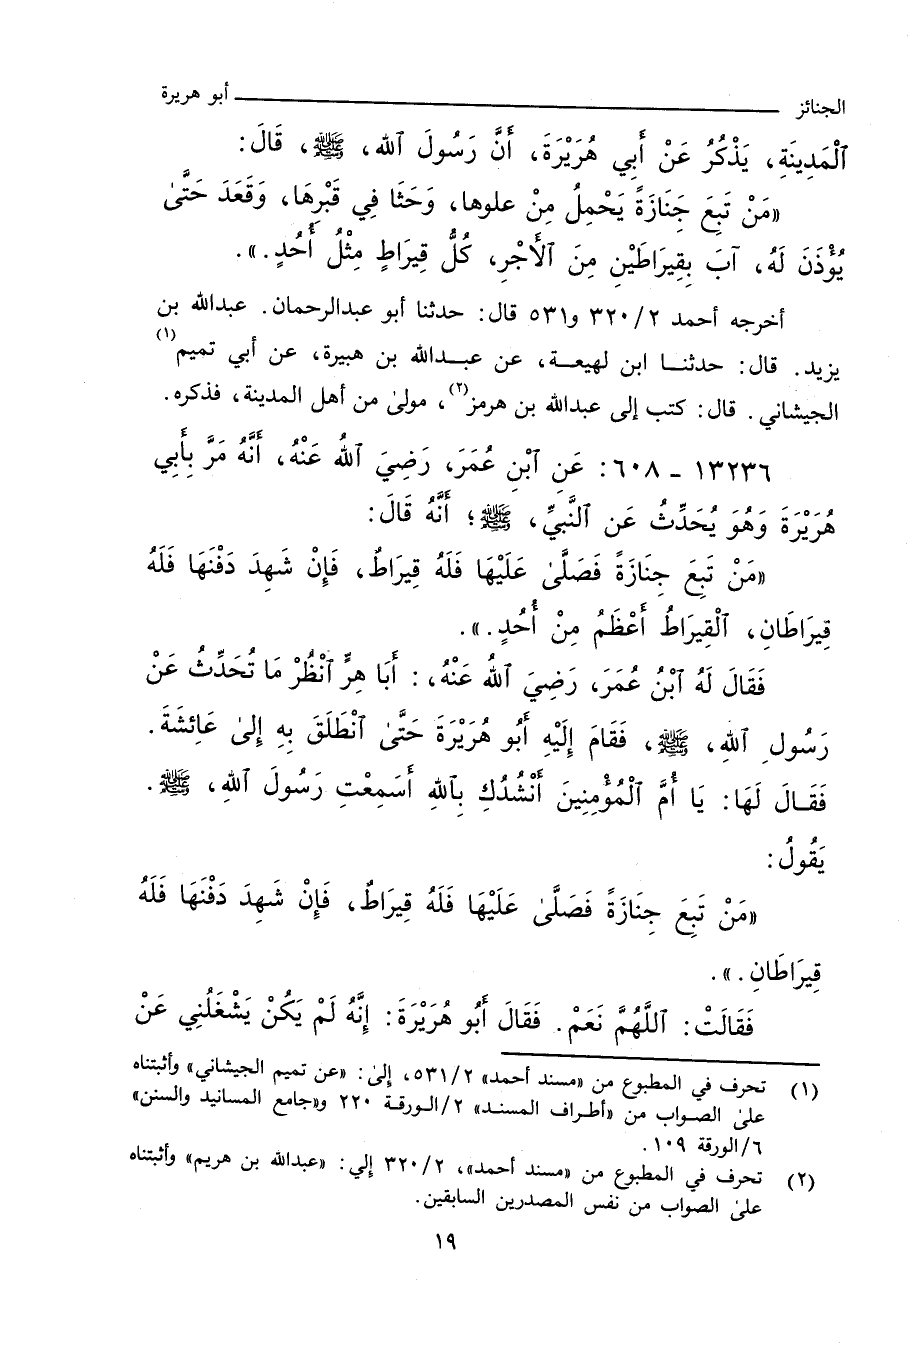 الجنائز ــــــــــــــــــــ أبو هريرة
ٱلْمَدِينَةِ، يَذْكُرُ عَنْ أَبِي هُرَيْرَةَ، أَنَّ رَسُولَ ٱلله، ﷺ، قَالَ:
«مَنْ تَبِعَ جَنَازَةً يَحْمِلُ مِنْ علوها، وَحَثَا فِي قَبْرِهَا، وَقَعَدَ حَتَّىٰ
يُؤْذَنَ لَهُ، آبَ بِقِيرَاطَيْنِ مِنَ ٱلأَجْرِ، كُلُّ قِيرَاطٍ مِثْلُ أُحُدٍ.».
أخرجه أحمد ٢/ ٣٢٠ و٥٣١ قال: حدثنا أبو عبدالرحمان. عبدالله بن
يزيد. قال: حدثنا ابن لهيعة، عن عبدالله بن هبيرة، عن أبي تميم(١)
الجيشاني. قال: كتب إلى عبدالله بن هرمز(٢)، مولىٰ من أهل المدينة، فذكره.
١٣٢٣٦ - ٦٠٨: عَنِ ٱبْنِ عُمَرَ، رَضِيَ ٱللهُ عَنْهُ، أَنَّهُ مَرَّ بِأَبِي
هُرَيْرَةَ وَهُوَ يُحَدِّثُ عَنِ ٱلنَّبِيِّ، ﷺ؛ أَنَّهُ قَالَ:
«مَنْ تَبِعَ جِنَازَةً فَصَلَّىٰ عَلَيْهَا فَلَهُ قِيرَاطٌ، فَإِنْ شَهِدَ دَفْنَهَا فَلَهُ
قِيرَاطَانِ، ٱلْقِيرَاطُ أَعْظَمُ مِنْ أُحُدٍ.».
فَقَالَ لَهُ ٱبْنُ عُمَرَ، رَضِيَ ٱللهُ عَنْهُ،: أَبَا هِرٍّ ٱنْظُرْ مَا تُحَدِّثُ عَنْ
رَسُولِ ٱللهِ، ﷺ، فَقَامَ إِلَيْهِ أَبُو هُرَيْرَةَ حَتَّىٰ ٱنْطَلَقَ بِهِ إِلىٰ عَائِشَةَ.
فَقَالَ لَهَا: يَا أُمَّ ٱلْمُؤْمِنِينَ أَنْشُدُكِ بِٱللهِ أَسَمِعْتِ رَسُولَ ٱللهِ، ﷺ.
يَقُولُ:
«مَنْ تَبِعَ جِنَازَةً فَصَلَّىٰ عَلَيْهَا فَلَهُ قِيرَاطٌ، فَإِنْ شَهِدَ دَفْنَهَا فَلَهُ
قِيرَاطَانِ.».
فَقَالَتْ: ٱللَّهُمَّ نَعَمْ. فَقَالَ أَبُو هُرَيْرَةَ: إِنَّهُ لَمْ يَكُنْ يَشْغَلُنِي عَنْ
(١) تحرف في المطبوع من «مسند أحمد» ٢/ ٥٣١، إلىٰ: «عن تميم الجيشاني» وأثبتناه
علىٰ الصواب من «أطراف المسند» ٢/الورقة ٢٢٠ و«جامع المسانيد والسنن»
٦/الورقة ١٠٩.
(٢) تحرف في المطبوع من «مسند أحمد»، ٢/ ٣٢٠ إلي: «عبدالله بن هريم» وأثبتناه
علىٰ الصواب من نفس المصدرين السابقين.
١٩